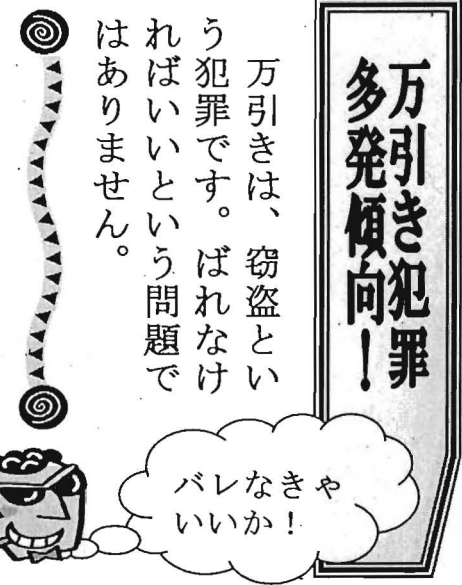 万引き犯罪
多発傾向！
万引きは、窃盗とい
う犯罪です。ばれなけ
ればいいという問題で
はありません。
バレなきゃ
いいか！